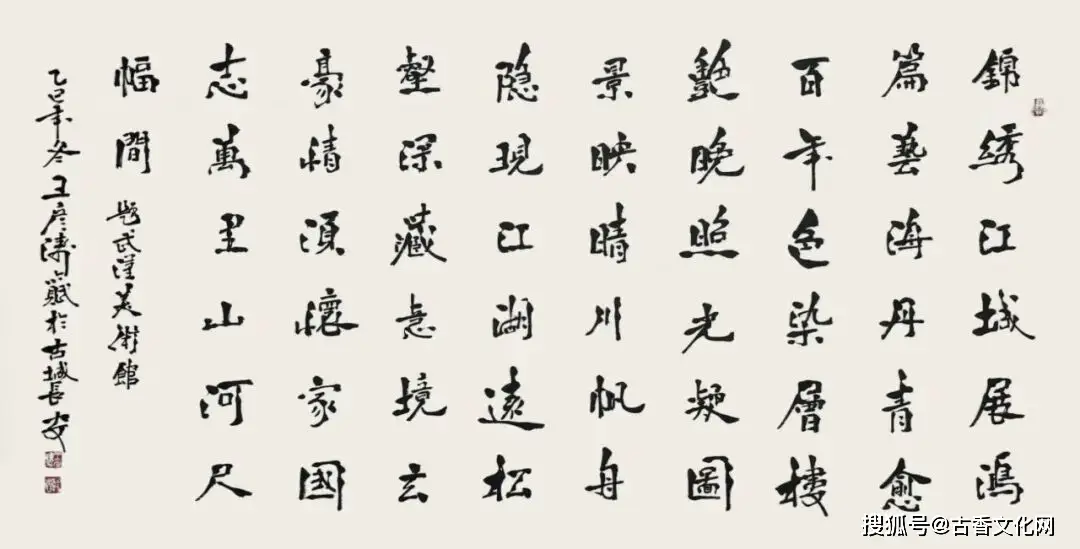 錦綉江城展鴻
篇藝海丹青愈
百年色染層樓
艷晚照光凝圖
景映晴川帆舟
隐現江湖遠松
壑深藏意境玄
豪情須懷家國
志萬里山河尺
幅間 題武漢美術館
乙巳年冬王彦濤賦於古城長安
搜狐号@古香文化网